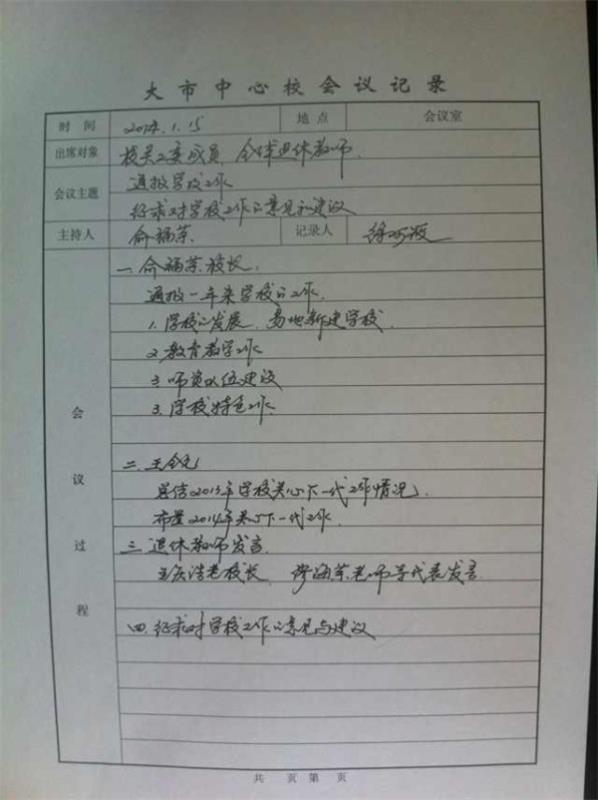 大市中心校会议记录
时 间 2014.1.15 地 点 会议室
出席对象 校关工委成员 全体退休教师.
会议主题 通报学校工作
征求对学校工作的意见和建议
主持人 俞福荣. 记录人 徐
会议过程
一.俞福荣校长:
通报一年来学校的工作.
1.学校的发展、易地新建学校.
2.教育教学工作
3.师资队伍建设
3.学校特色工作.
二.王
总结2013年学校关心下一代工作情况.
布置2014年关心下一代工作
三.退休教师发言.
老校长、海荣老师等代表发言
四.征求对学校工作的意见与建议
共 页 第 页